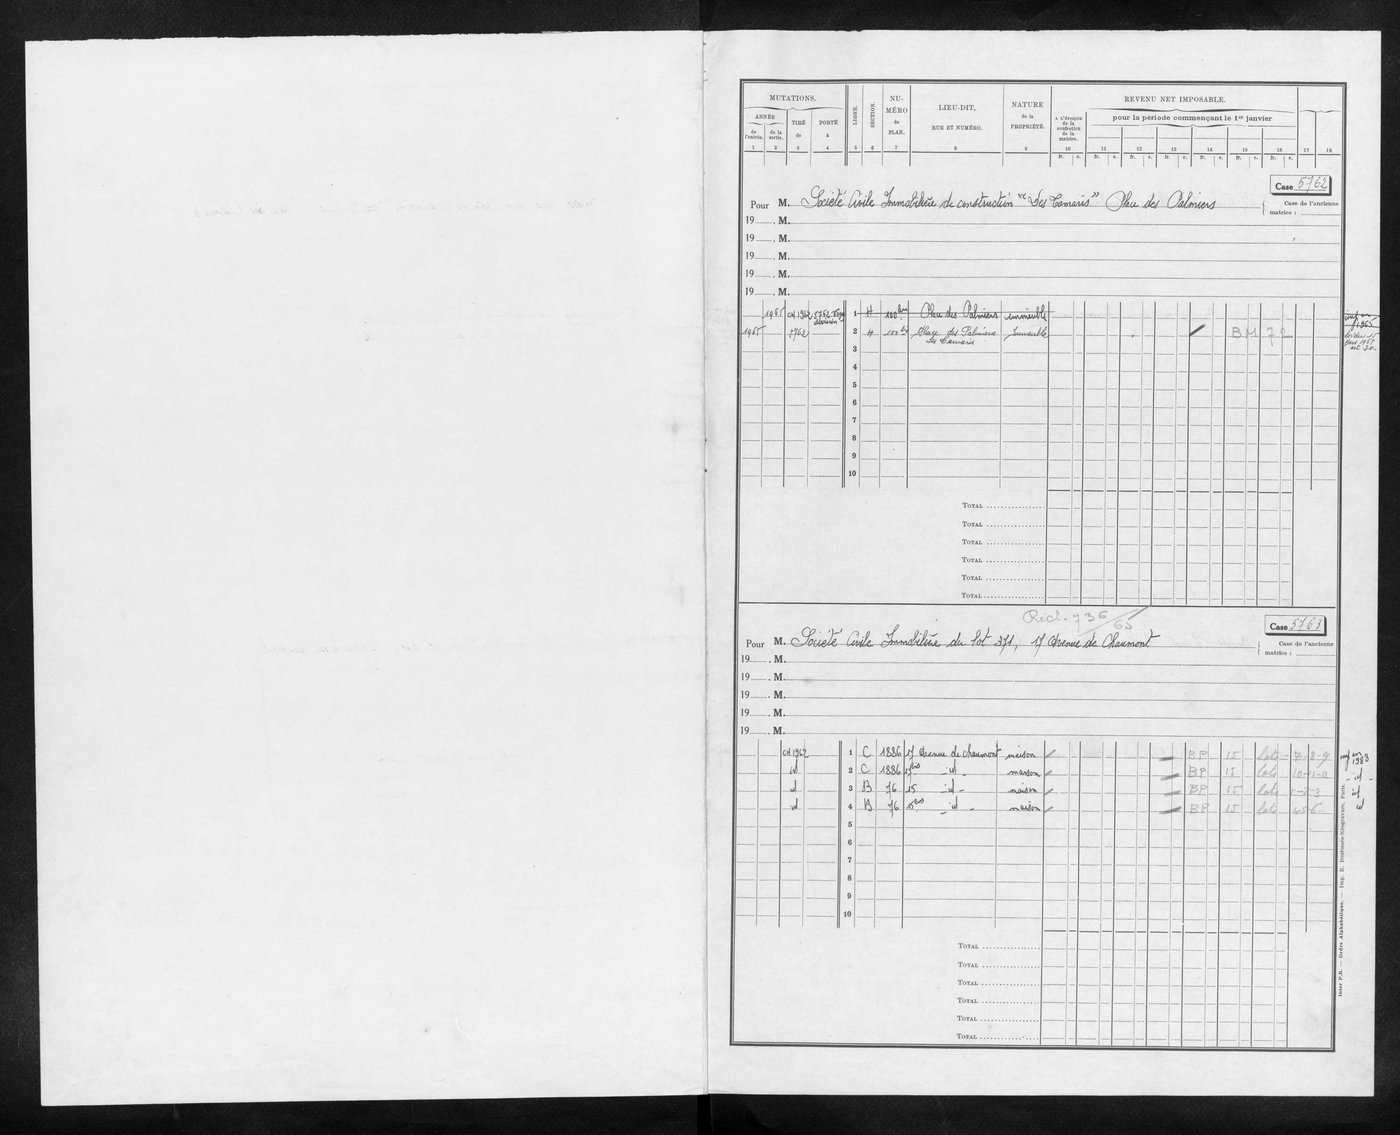 MUTATIONS.
ANNÉE
de l'entrée.
de la sortie.
TIRÉ de
PORTÉ à
LIGNE.
SECTION.
NU-
MÉRO
de
PLAN.
LIEU-DIT,
RUE ET NUMÉRO.
NATURE
de la
PROPRIÉTÉ.
REVENU NET IMPOSABLE.
A L'ÉPOQUE
de la
confection
de la
matrice.
pour la période commençant le 1er janvier
1 2 3 4 5 6 7 8 9 10 11 12 13 14 15 16 17 18
fr. c. fr. c. fr. c. fr. c. fr. c. fr. c. fr. c.
Case 5762
Pour M. Société Civile Immobilière de construction "Les Tamaris" Place des Palmiers
Case de l'ancienne
matrice :
19 . M.
19 . M.
19 . M.
19 . M.
19 . M.
1965 CN 1962 5762 1 H 100 Place des Palmiers immeuble
1965 5762 2 H 100 Place des Palmiers Immeuble BM 72
Les Tamaris
3
4
5
6
7
8
9
10
TOTAL
TOTAL
TOTAL
TOTAL
TOTAL
TOTAL
Récl. 736/65
Case 5761
Pour M. Société Civile Immobilière du lot 371, 17 Avenue de Chaumont
Case de l'ancienne
matrice :
19 . M.
19 . M.
19 . M.
19 . M.
19 . M.
CN 1962 1 C 1886 17 Avenue de Chaumont maison BP 15 lots 7-8-9
id 2 C 1886 17bis id maison BP 15 lots 10-11-12
id 3 B 76 15 id maison BP 15 lots 1-2-3
id 4 B 76 15bis id maison BP 15 lots 4-5-6
5
6
7
8
9
10
TOTAL
TOTAL
TOTAL
TOTAL
TOTAL
TOTAL
Inter P.B. — Ordre Alphabétique. — Imp. E. Desfossés-Néogravure, Paris.